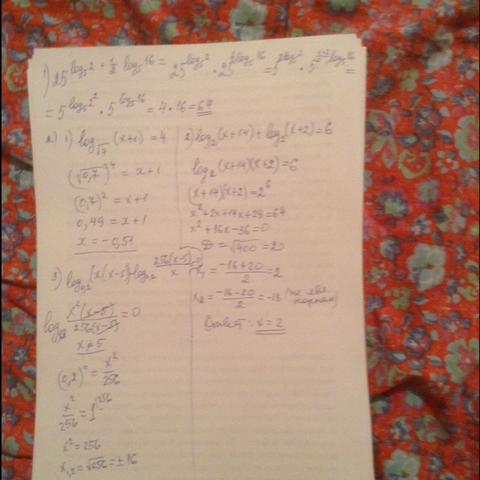 1) 25^(log₅2 + ½ log₅16) = 25^(log₅2) · 25^(½log₅16) = 5^(2log₅2) · 5^(2·½log₅16) =
= 5^(log₅2²) · 5^(log₅16) = 4 · 16 = 64
2) 1) log_√0,7 (x+1) = 4
(√0,7)⁴ = x+1
(0,7)² = x+1
0,49 = x+1
x = −0,51
2) log₂(x+14) + log₂(x+2) = 6
log₂(x+14)(x+2) = 6
(x+14)(x+2) = 2⁶
x²+2x+14x+28 = 64
x²+16x−36 = 0
D = √400 = 20
x₁ = (−16+20)/2 = 2
x₂ = (−16−20)/2 = −18 (не явл. корнем)
Ответ: x = 2
3) log₀,₂(x(x−5)) log₀,₂ 256(x−5)/x = 0
log₀,₂ x²(x−5)/256(x−5) = 0
x ≠ 5
(0,2)⁰ = x²/256
x²/256 = 1
x² = 256
x₁,₂ = √256 = ±16